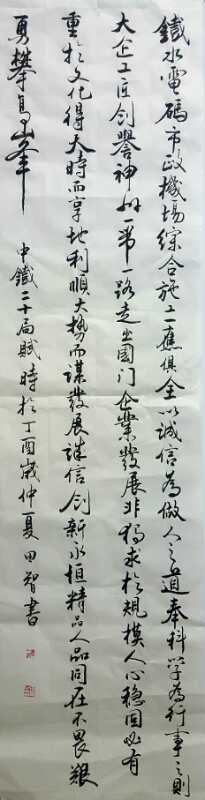 鐵水電碼市政機場綜合施工應俱全以誠信為做人之道奉科學為行事之則
大企工匠創譽神州一帶一路走出国门企業發展非獨求於規模人心穩固必有
重於文化得天時而享地利順大勢而謀發展誠信創新永恒精品人品同在不畏艱
勇攀高峰 中鐵二十局賦 時於丁酉歲仲夏 田智書